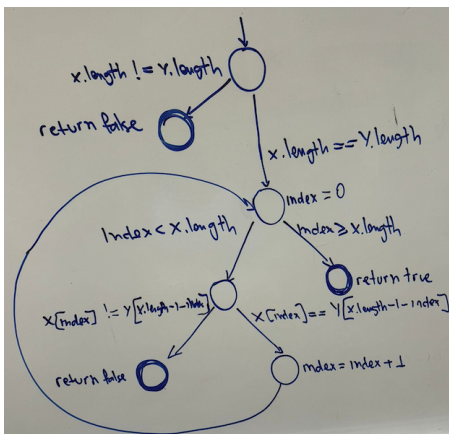 x.length != Y.length
return false
x.length == Y.length
index = 0
Index < x.length
index ≥ x.length
return true
X[index] != Y[x.length-1-index]
X[index] == Y[x.length-1-index]
return false
index = index + 1